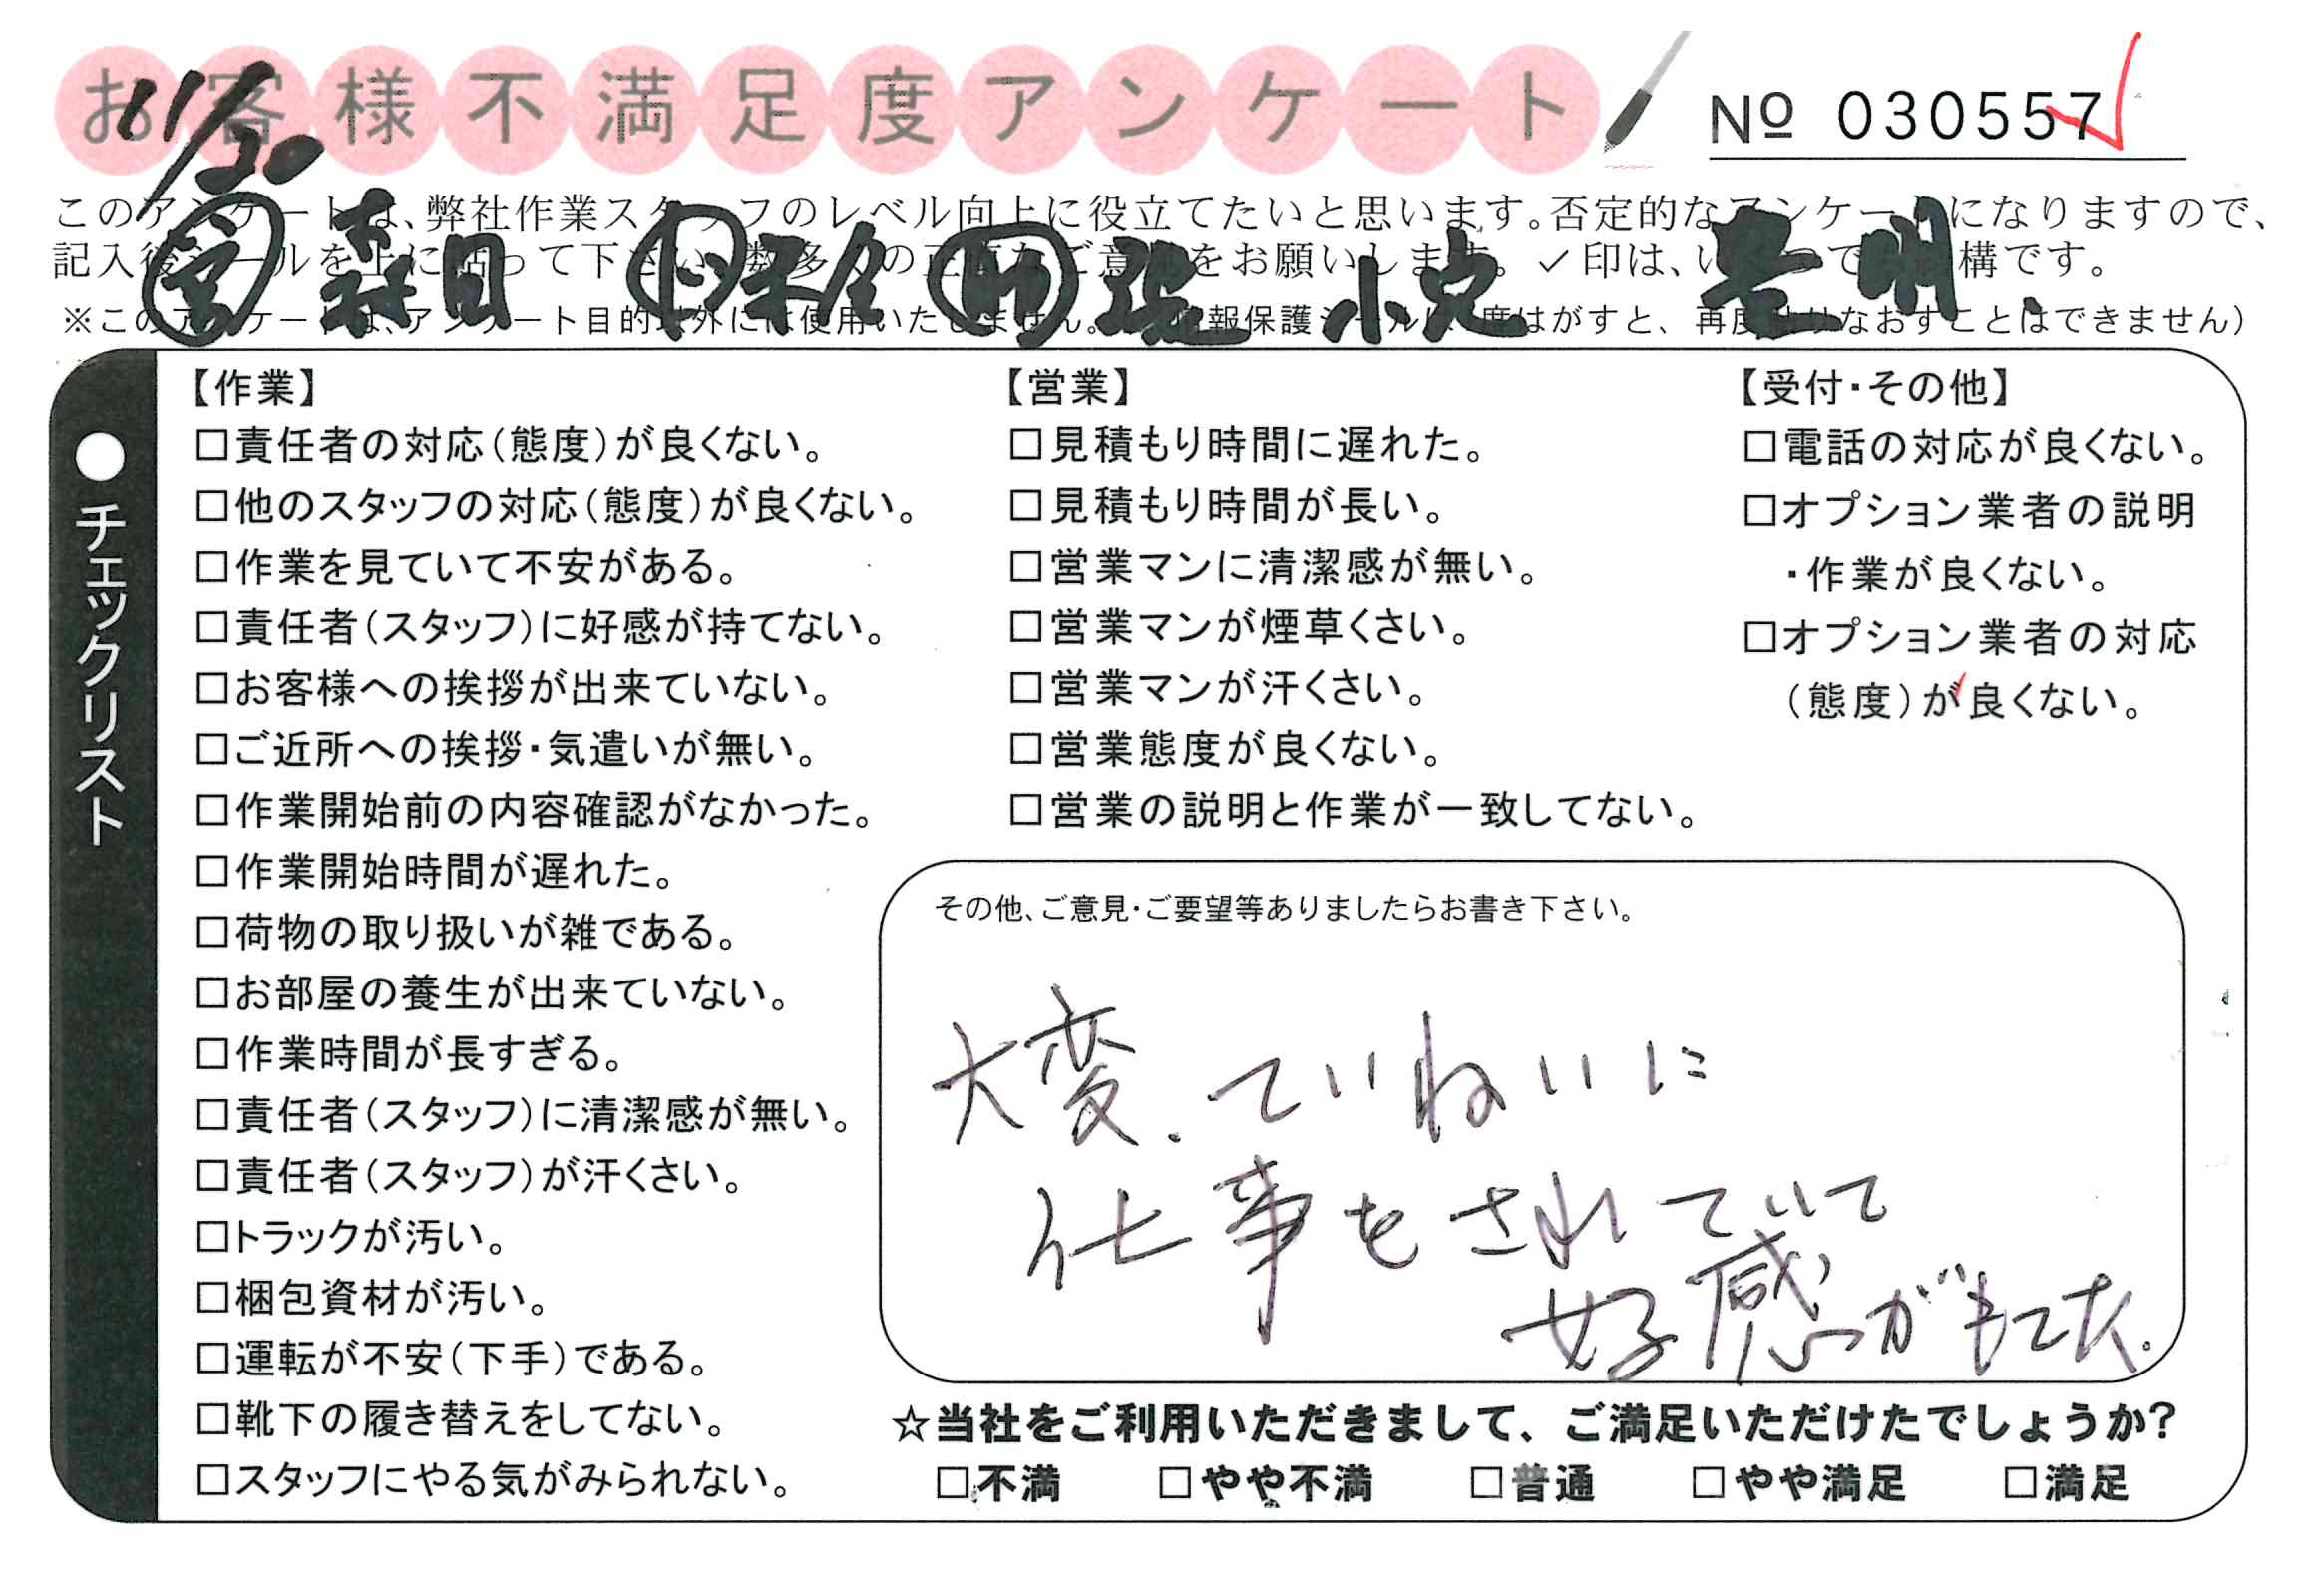 お客様不満足度アンケート
№ 030557
11/30
このアンケートは、弊社作業スタッフのレベル向上に役立てたいと思います。否定的なアンケートになりますので、
記入後シールを上に貼って下さい。数多くの正直なご意見をお願いします。✓印は、いくつでも結構です。
※このアンケートは、アンケート目的以外には使用いたしません。
再度はりなおすことはできません）
営 森田
小宍
●チェックリスト
【作業】
□責任者の対応（態度）が良くない。
□他のスタッフの対応（態度）が良くない。
□作業を見ていて不安がある。
□責任者（スタッフ）に好感が持てない。
□お客様への挨拶が出来ていない。
□ご近所への挨拶・気遣いが無い。
□作業開始前の内容確認がなかった。
□作業開始時間が遅れた。
□荷物の取り扱いが雑である。
□お部屋の養生が出来ていない。
□作業時間が長すぎる。
□責任者（スタッフ）に清潔感が無い。
□責任者（スタッフ）が汗くさい。
□トラックが汚い。
□梱包資材が汚い。
□運転が不安（下手）である。
□靴下の履き替えをしてない。
□スタッフにやる気がみられない。
【営業】
□見積もり時間に遅れた。
□見積もり時間が長い。
□営業マンに清潔感が無い。
□営業マンが煙草くさい。
□営業マンが汗くさい。
□営業態度が良くない。
□営業の説明と作業が一致してない。
【受付・その他】
□電話の対応が良くない。
□オプション業者の説明
・作業が良くない。
□オプション業者の対応
（態度）が良くない。
その他、ご意見・ご要望等ありましたらお書き下さい。
大変、ていねいに
仕事をされていて
好感がもてた。
☆当社をご利用いただきまして、ご満足いただけたでしょうか？
□不満 □やや不満 □普通 □やや満足 □満足